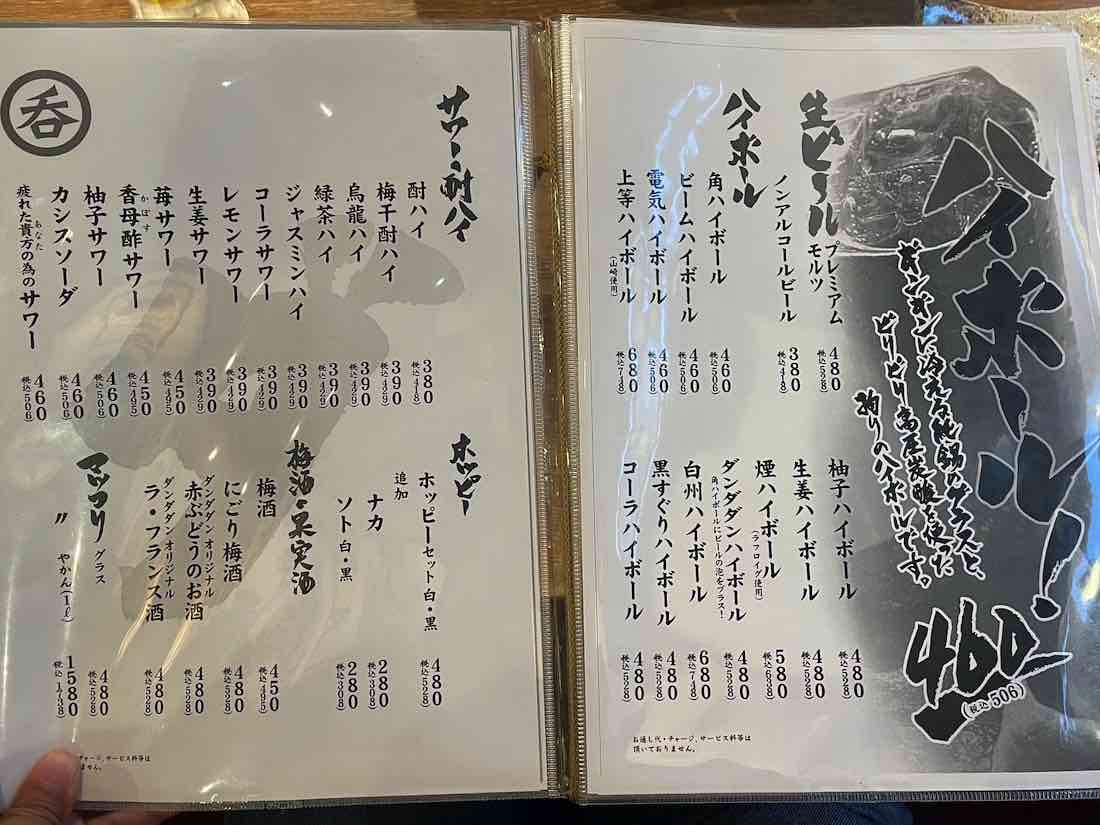 ハイボール!
キンキンに冷える純錫のグラスと、
ビリビリ高圧炭酸を使った
拘りのハイボールです。
460
(税込506)
生ビール
プレミアムモルツ 480 (税込528)
ノンアルコールビール 380 (税込418)
ハイボール
角ハイボール 460 (税込506)
ビームハイボール 460 (税込506)
電気ハイボール 460 (税込506)
上等ハイボール (山崎使用) 680 (税込748)
柚子ハイボール 480 (税込528)
生姜ハイボール 480 (税込528)
煙ハイボール (ラフロイグ使用) 580 (税込638)
ダンダダンハイボール 480 (税込528)
角ハイボールにビールの泡をプラス!
白州ハイボール 680 (税込748)
黒すぐりハイボール 480 (税込528)
コーラハイボール 480 (税込528)
お通し代・チャージ、サービス料等は
頂いておりません。
呑
サワー・酎ハイ
酎ハイ 380 (税込418)
梅干酎ハイ 390 (税込429)
烏龍ハイ 390 (税込429)
緑茶ハイ 390 (税込429)
ジャスミンハイ 390 (税込429)
コーラサワー 390 (税込429)
レモンサワー 390 (税込429)
生姜サワー 390 (税込429)
苺サワー 450 (税込495)
香母酢サワー かぼす 450 (税込495)
柚子サワー 460 (税込506)
カシスソーダ 460 (税込506)
疲れた貴方の為のサワー あなた 460 (税込506)
ホッピー
ホッピーセット 白・黒 480 (税込528)
追加
ナカ 280 (税込308)
ソト 白・黒 280 (税込308)
梅酒・果実酒
梅酒 450 (税込495)
にごり梅酒 480 (税込528)
ダンダダンオリジナル
赤ぶどうのお酒 480 (税込528)
ダンダダンオリジナル
ラ・フランス酒 480 (税込528)
マッコリ
グラス 480 (税込528)
〃 やかん(1ℓ) 1580 (税込1738)
チャージ、サービス料等は
ません。